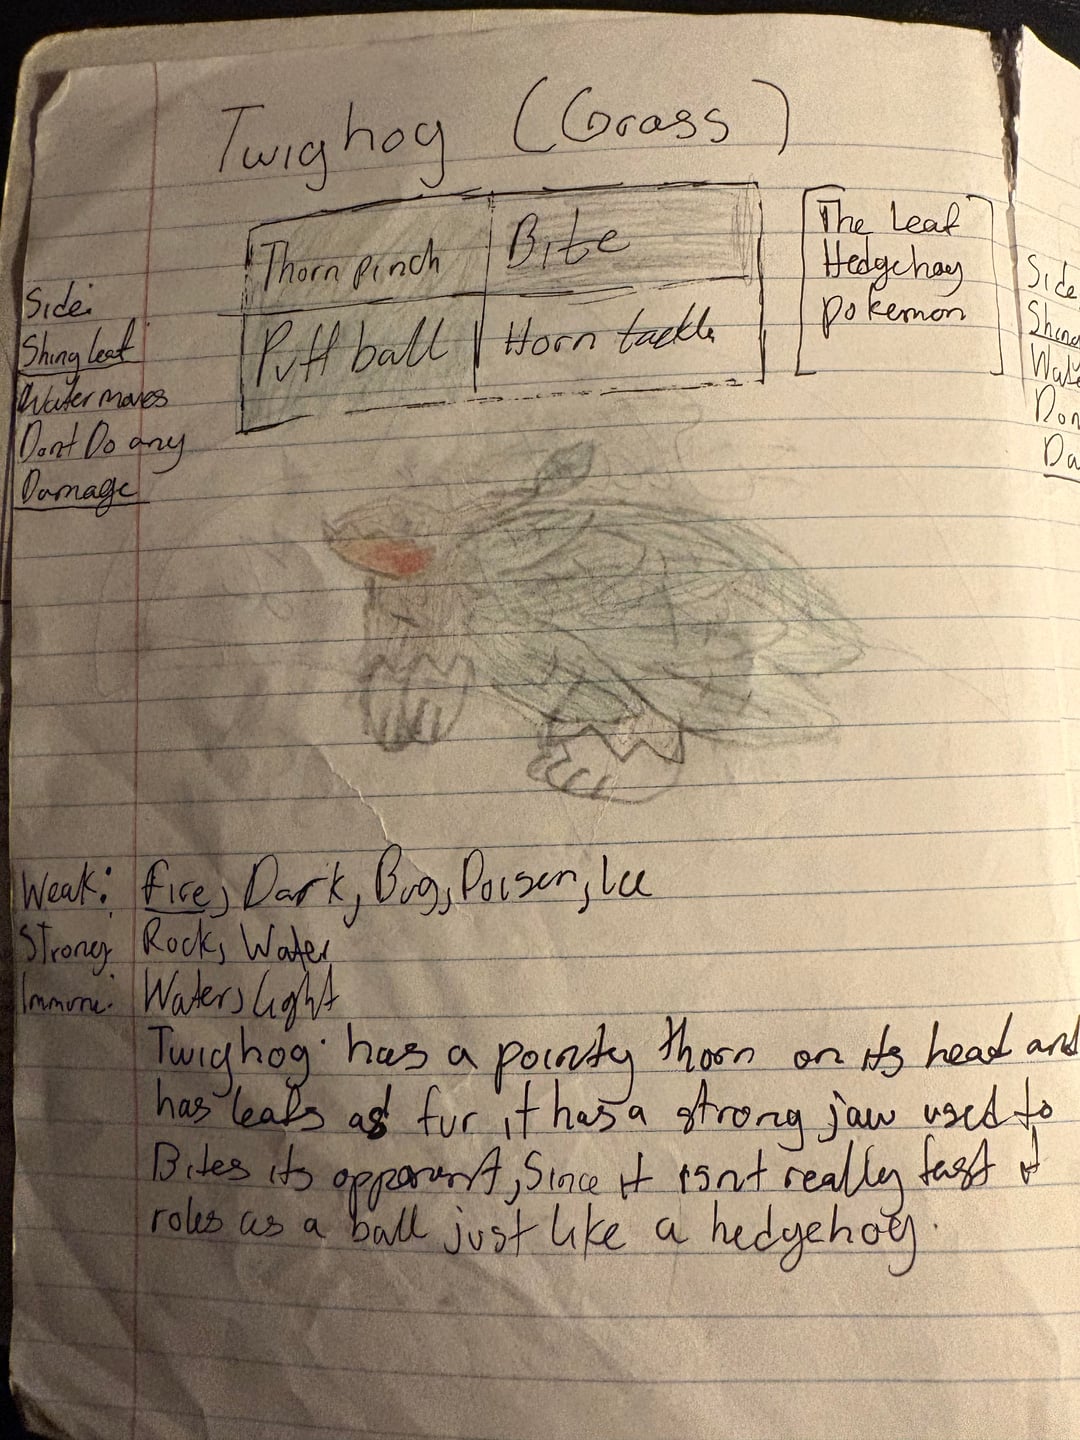 Twighog (Grass)
Thorn pinch
Bite
Puff ball
Horn tackle
The Leaf
Hedgehog
pokemon
Side:
Shing leaf
Water moves
Dont Do any
Damage
Side
Shing
Wate
Don
Da
Weak: fire, Dark, Bug, Poisen, Ice
Strong: Rock, Water
Immune: Water, light
Twighog has a pointy thorn on its head and
has leafs as fur it has a strong jaw used to
Bites its opponent, Since it isnt really fast it
roles as a ball just like a hedgehog.